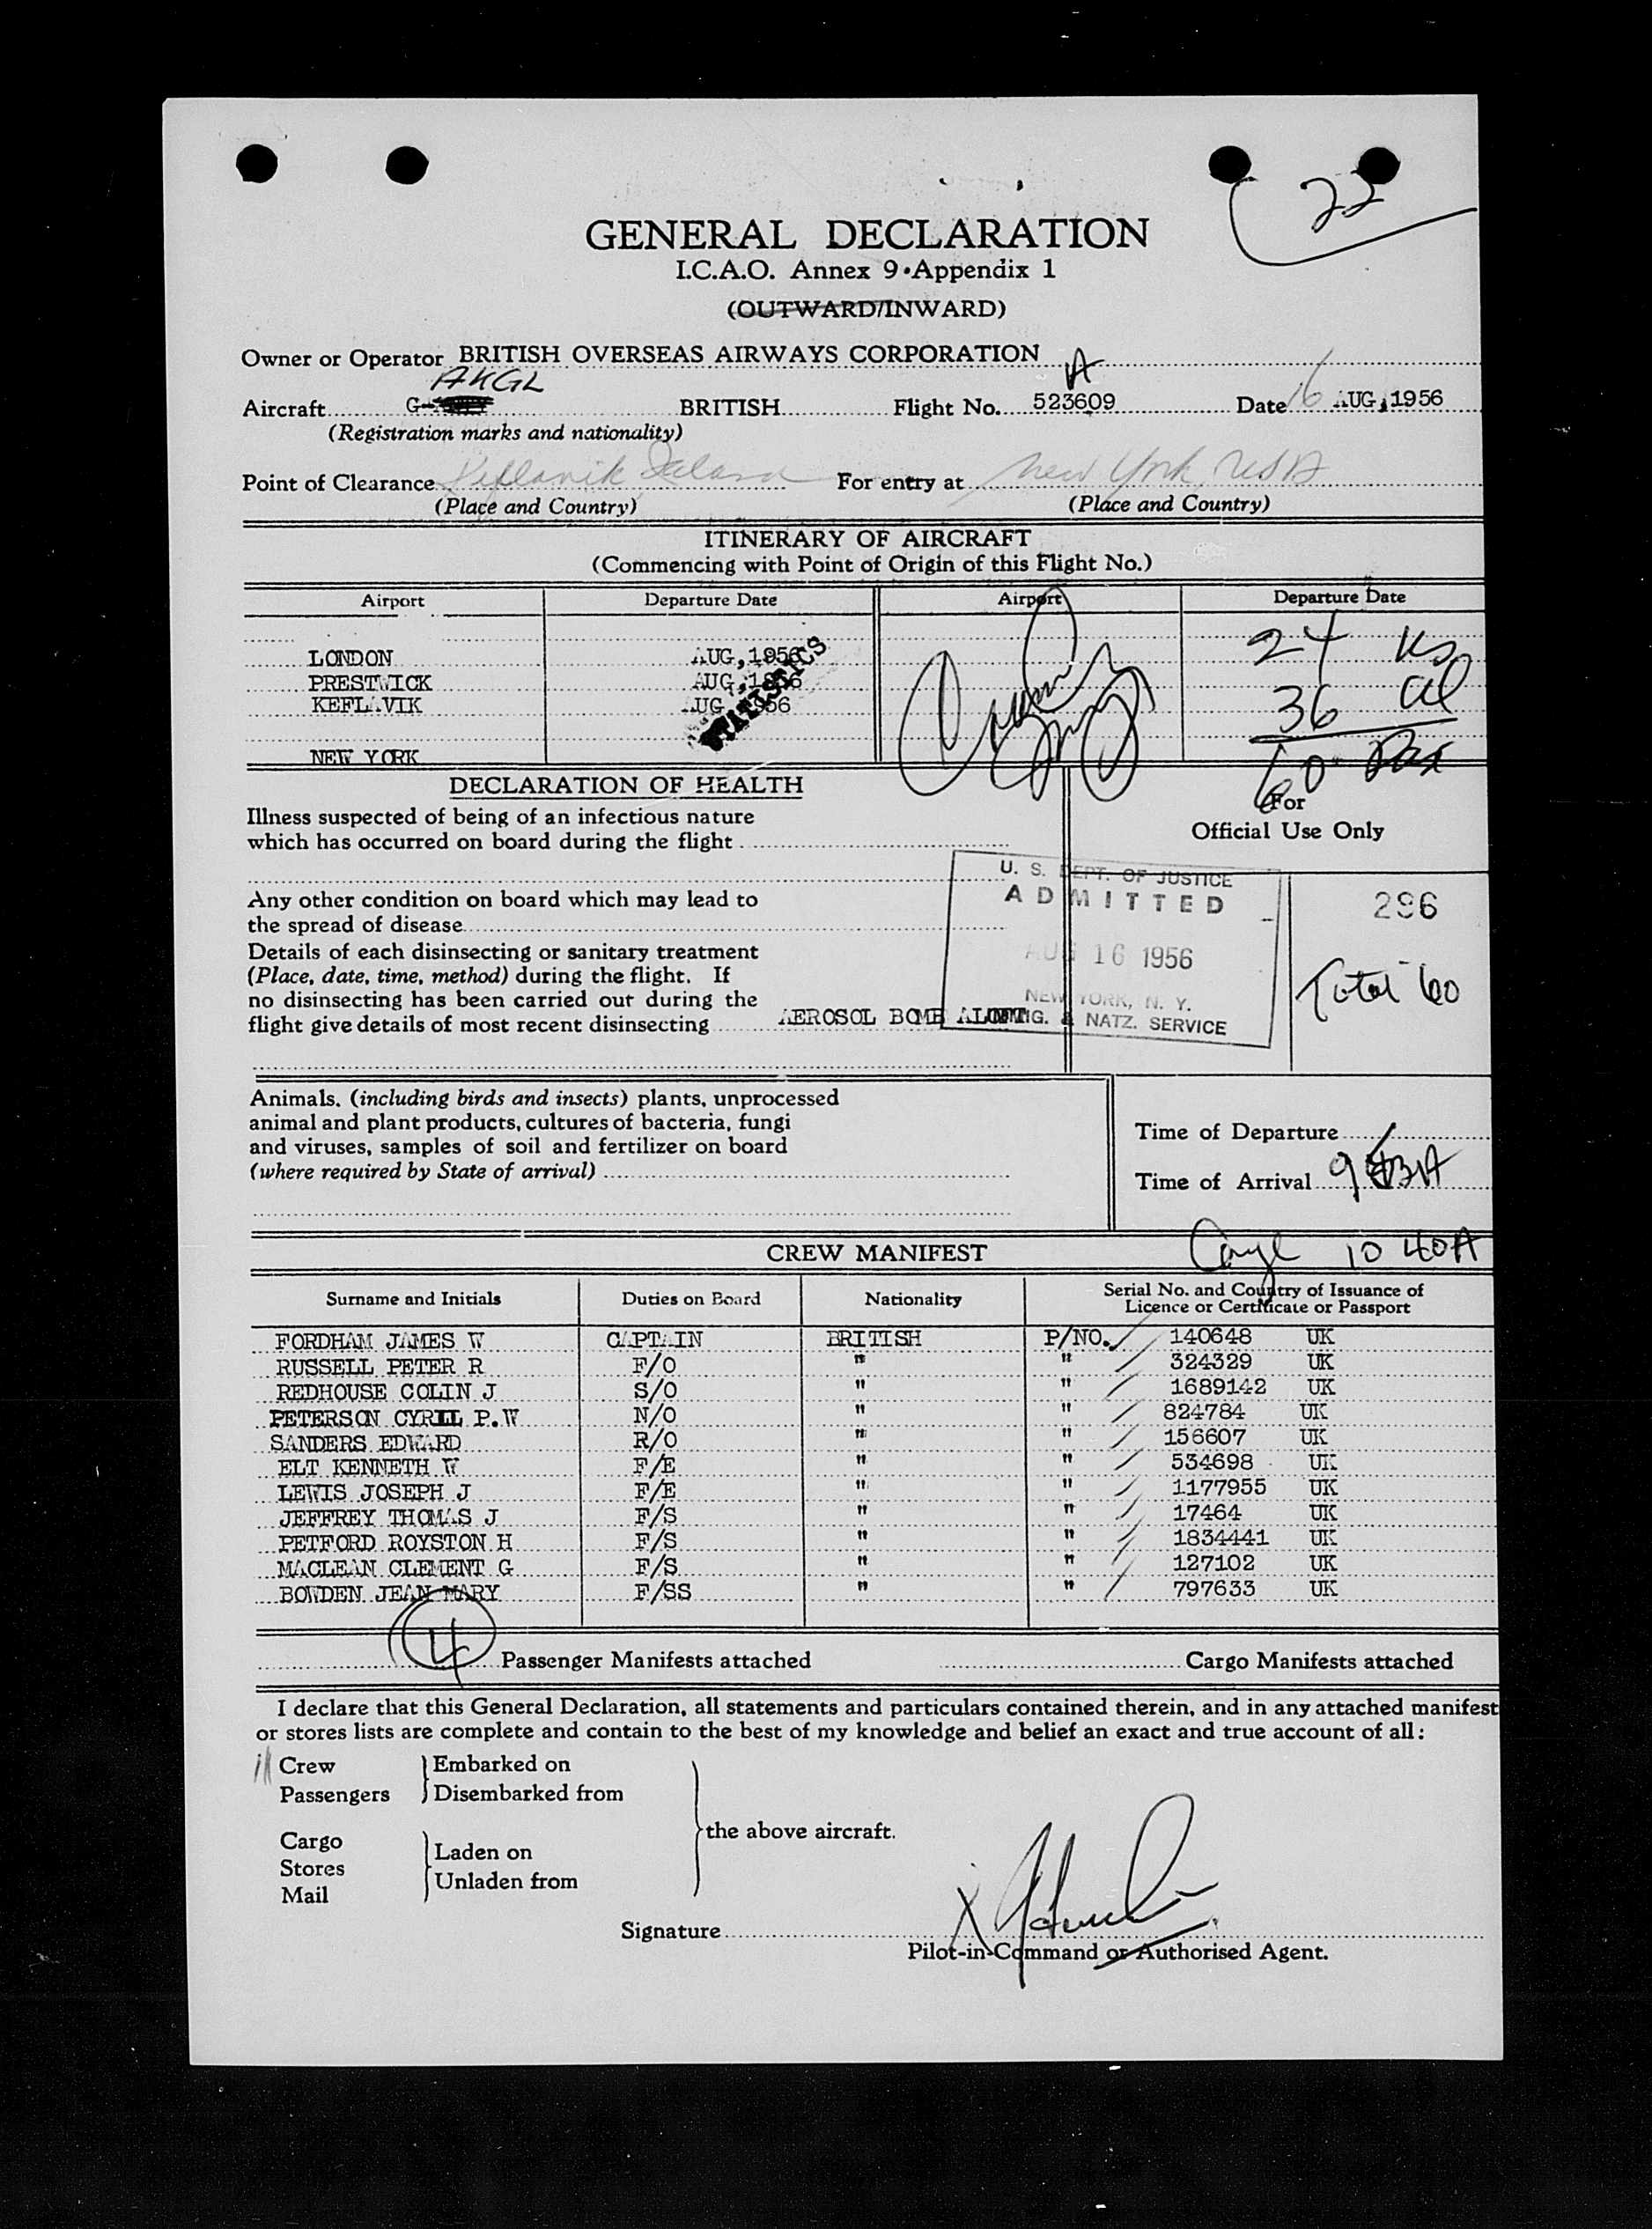 22
GENERAL DECLARATION
I.C.A.O. Annex 9·Appendix 1
(OUTWARD/INWARD)
Owner or Operator BRITISH OVERSEAS AIRWAYS CORPORATION
AKGL A
Aircraft G- BRITISH Flight No. 523609 Date 16 AUG,1956
(Registration marks and nationality)
Point of Clearance Keflavik For entry at New York, USA
(Place and Country) (Place and Country)
ITINERARY OF AIRCRAFT
(Commencing with Point of Origin of this Flight No.)
Airport Departure Date Airport Departure Date
LONDON AUG,1956 24 us
PRESTWICK AUG,1956
KEFLAVIK AUG 1956 36 al
STATISTICS
NEW YORK 60
DECLARATION OF HEALTH
For
Official Use Only
Illness suspected of being of an infectious nature
which has occurred on board during the flight
Any other condition on board which may lead to
the spread of disease
Details of each disinsecting or sanitary treatment
(Place, date, time, method) during the flight. If
no disinsecting has been carried out during the
flight give details of most recent disinsecting AEROSOL BOMB ALOFT
U. S. DEPT. OF JUSTICE
ADMITTED
AUG 16 1956
NEW YORK, N. Y.
IMMIG. & NATZ. SERVICE
296
Total 60
Animals, (including birds and insects) plants, unprocessed
animal and plant products, cultures of bacteria, fungi
and viruses, samples of soil and fertilizer on board
(where required by State of arrival)
Time of Departure
Time of Arrival
CREW MANIFEST 10 40A
Surname and Initials Duties on Board Nationality Serial No. and Country of Issuance of
Licence or Certificate or Passport
FORDHAM JAMES W CAPTAIN BRITISH P/NO. 140648 UK
RUSSELL PETER R F/O " " 324329 UK
REDHOUSE COLIN J S/O " " 1689142 UK
PETERSON CYRIL P.W N/O " " 824784 UK
SANDERS EDWARD R/O " " 156607 UK
ELT KENNETH W F/E " " 534698 UK
LEWIS JOSEPH J F/E " " 1177955 UK
JEFFREY THOMAS J F/S " " 17464 UK
PETFORD ROYSTON H F/S " " 1834441 UK
MACLEAN CLEMENT G F/S " " 127102 UK
BOWDEN JEAN MARY F/SS " " 797633 UK
4 Passenger Manifests attached Cargo Manifests attached
I declare that this General Declaration, all statements and particulars contained therein, and in any attached manifest
or stores lists are complete and contain to the best of my knowledge and belief an exact and true account of all:
11 Crew Embarked on
Passengers Disembarked from
the above aircraft.
Cargo
Stores Laden on
Mail Unladen from
Signature X
Pilot-in-Command or Authorised Agent.